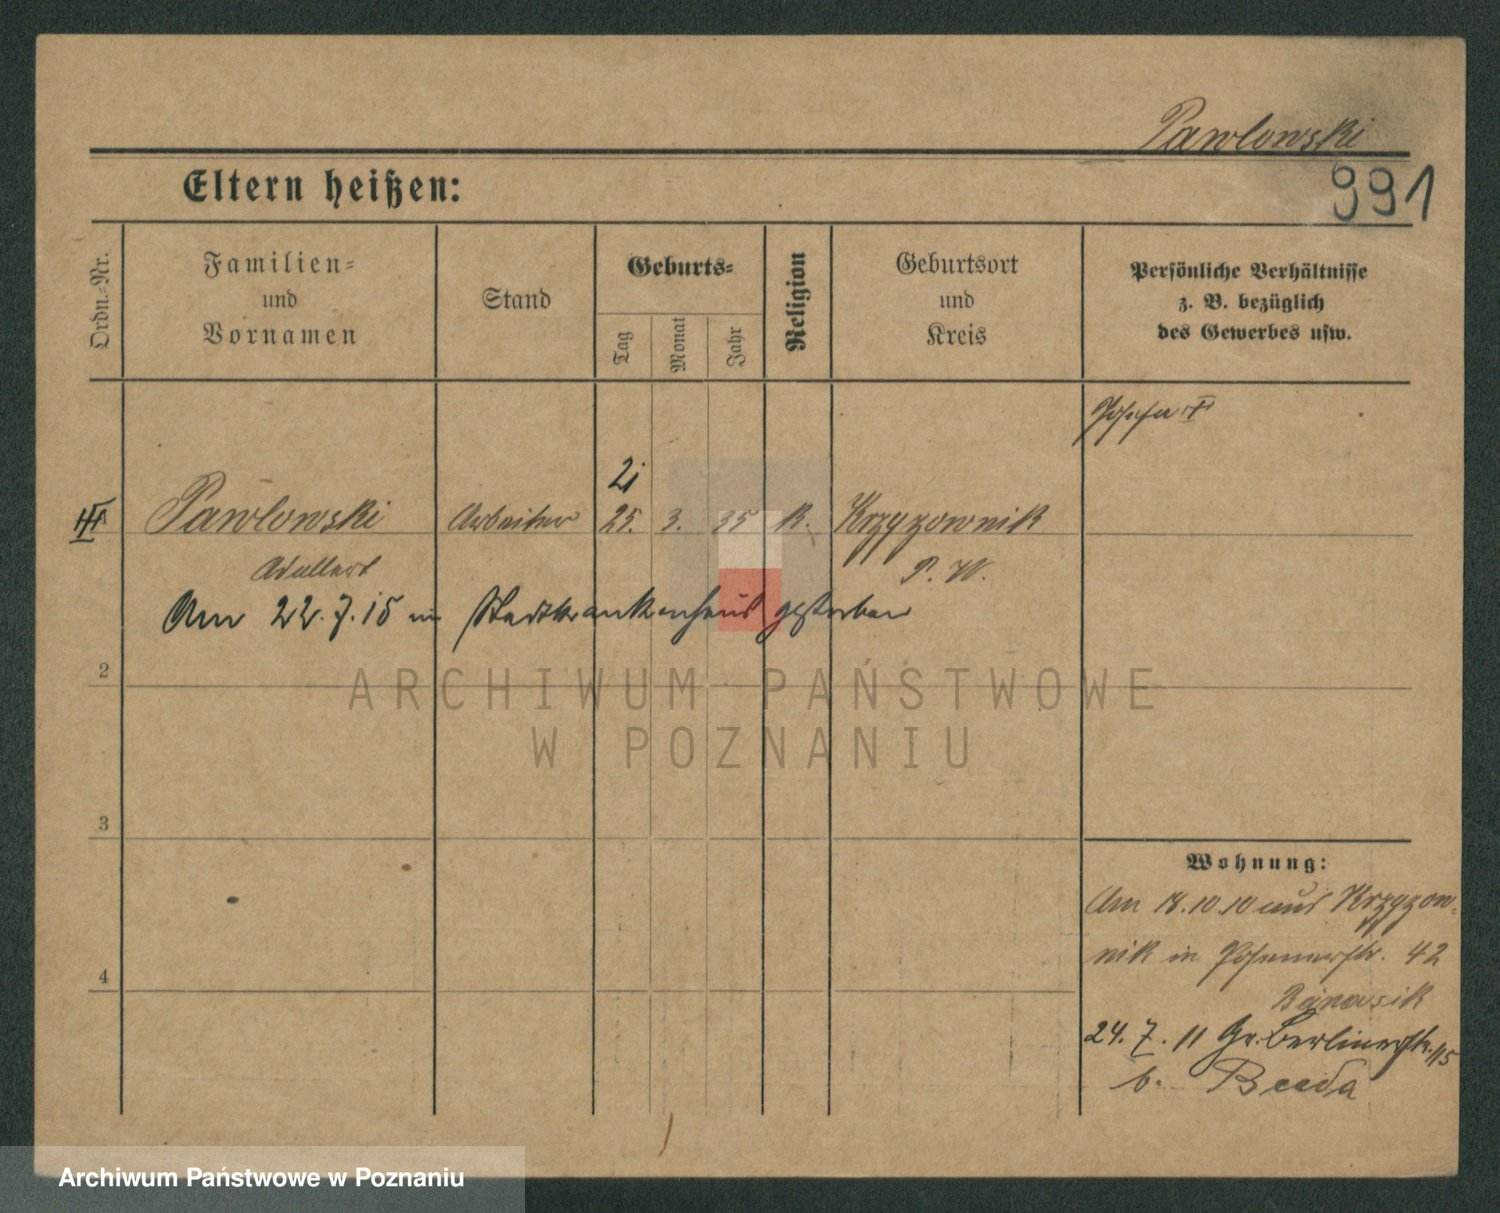 Pawlowski
Eltern heißen:
991
Ordn.-Nr.
Familien-
und
Vornamen
Stand
Geburts-
Tag
Monat
Jahr
Religion
Geburtsort
und
Kreis
Persönliche Verhältnisse
z. B. bezüglich
des Gewerbes usw.
21
Pawlowski Arbeiter 25. 3. 35 k. Krzyzownik
Adalbert P. W.
Am 22.7.15 im Stadtkrankenhaus gestorben
2
ARCHIWUM PAŃSTWOWE
W POZNANIU
3
Wohnung:
Am 18.10.10 aus Krzyzow-
nik in Posenerstr. 42
4
24. 7. 11 Gr. Berlinerstr. 115
b.
Archiwum Państwowe w Poznaniu